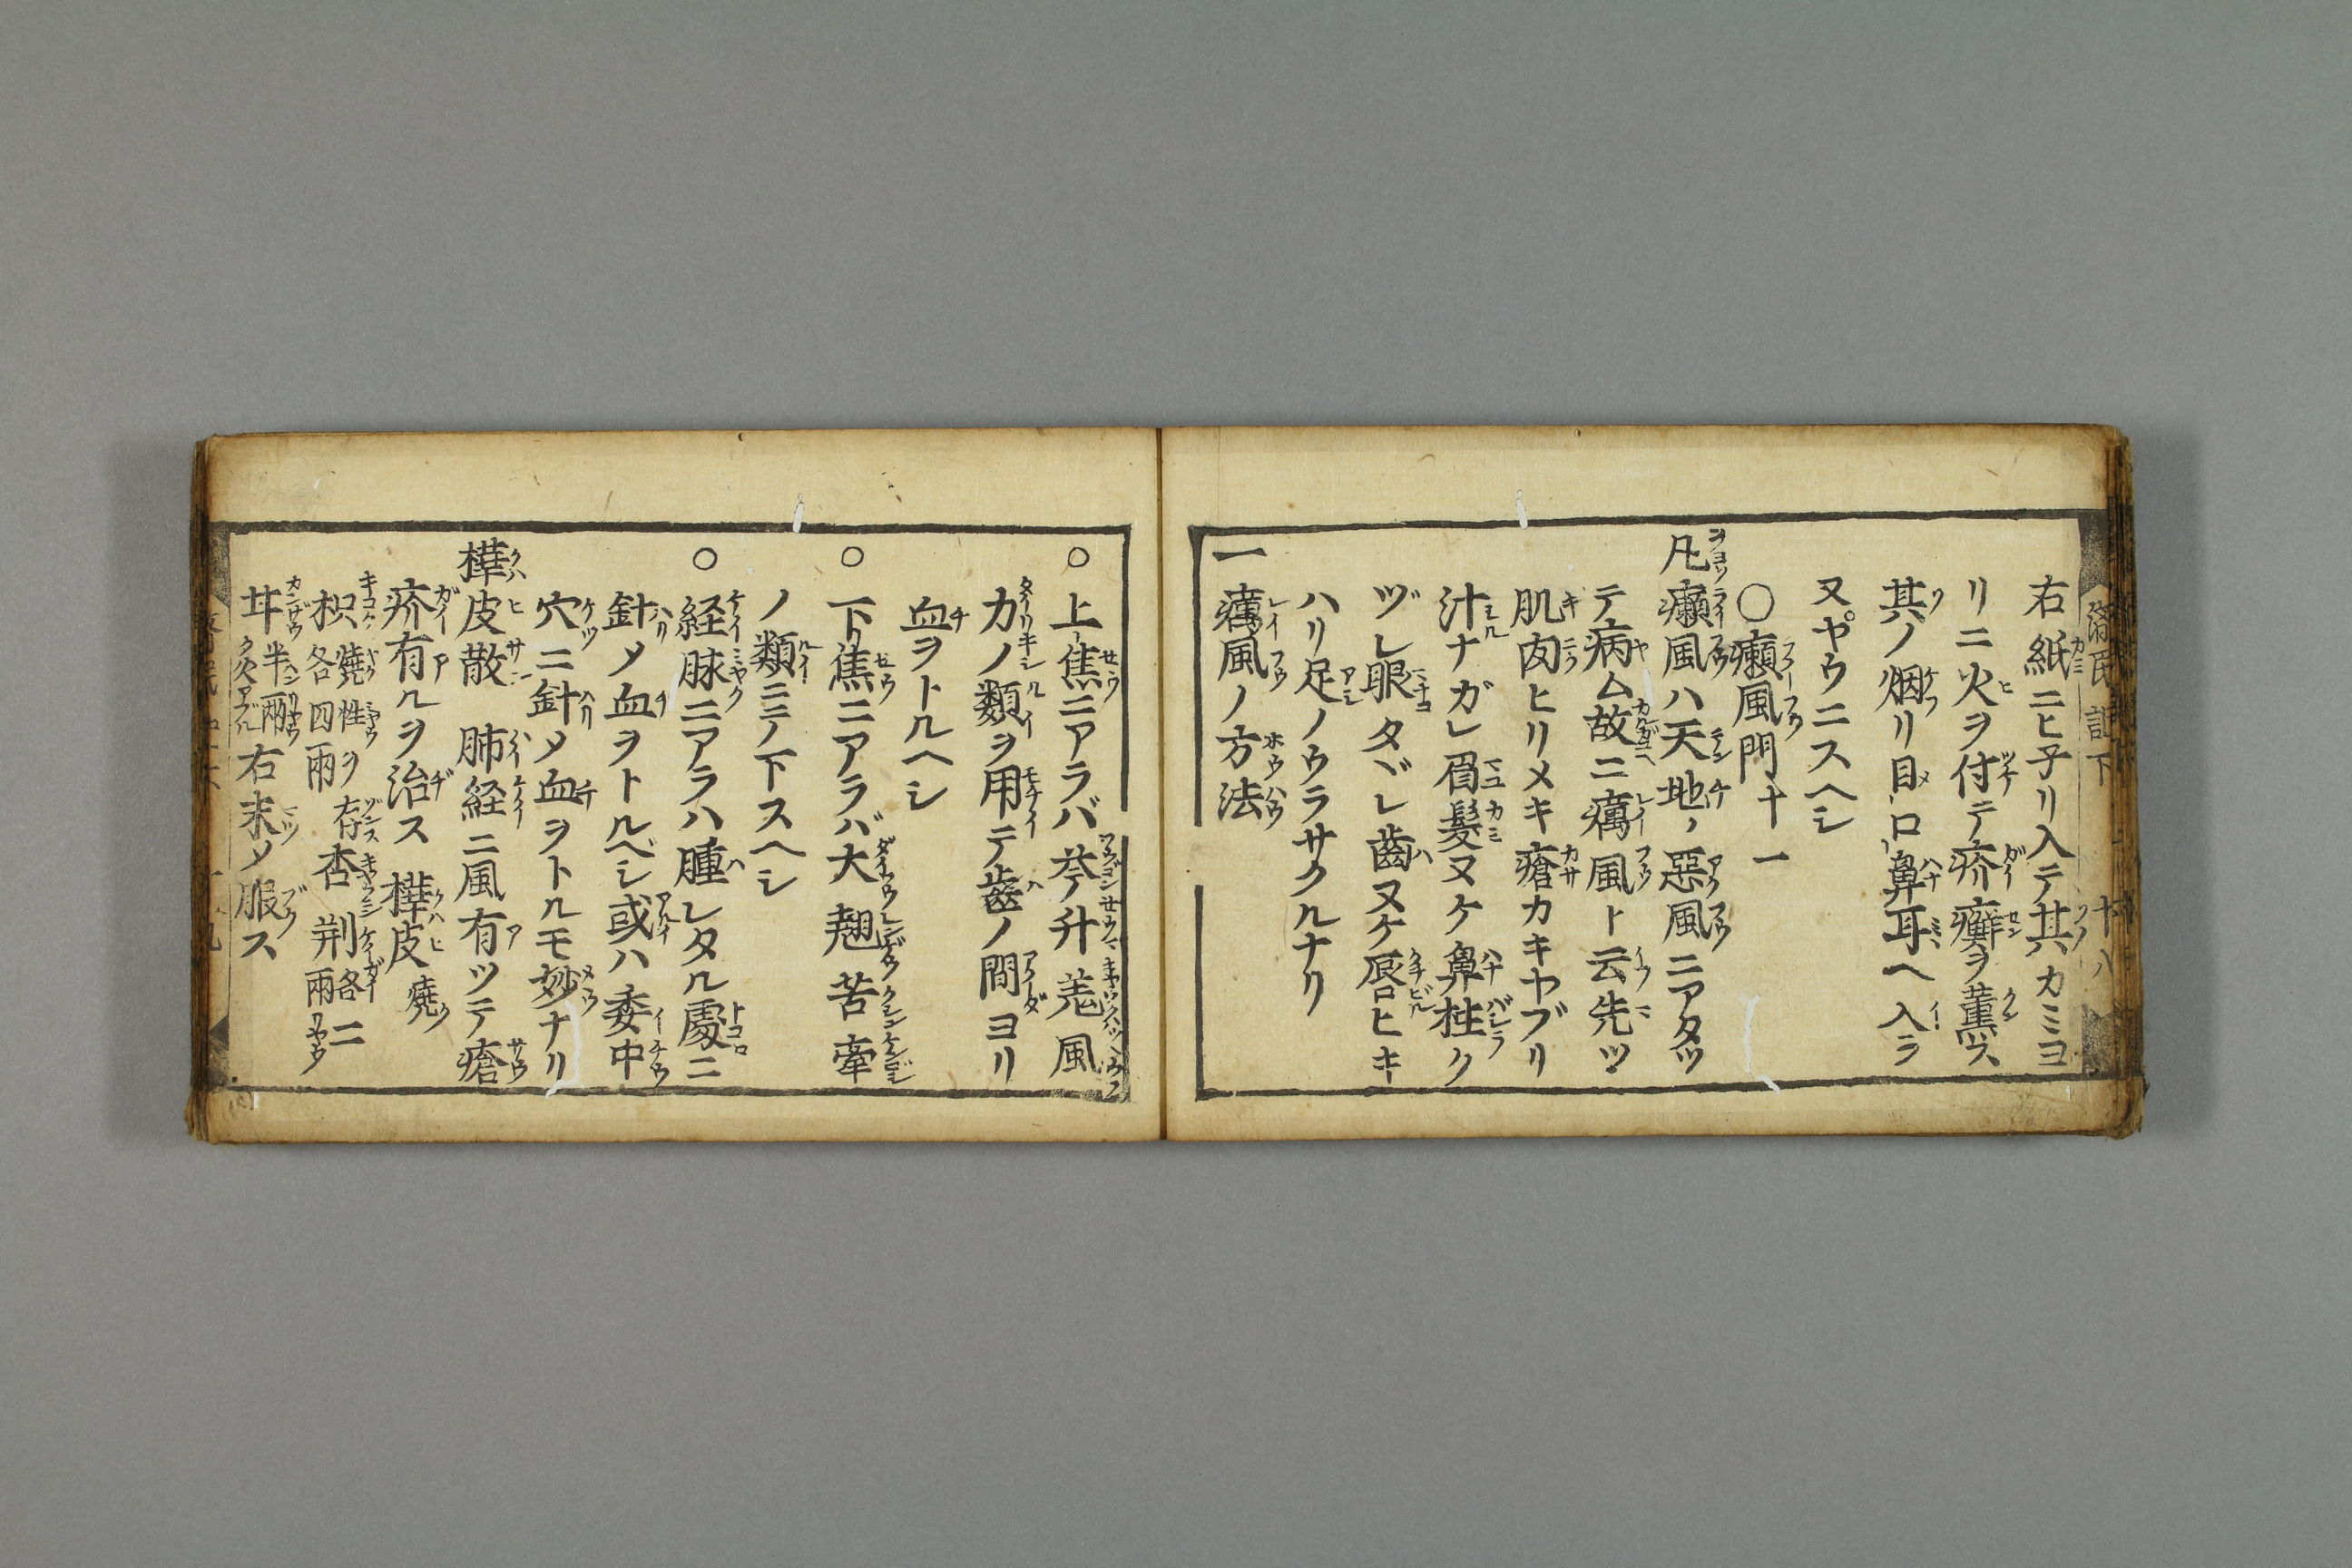 右紙ニヒ子リ入テ其ノカミヨ
リニ火ヲ付テ疥癬ヲ薫ス
其ノ烟リ目口鼻耳ヘ入ラ
ヌヤウニスヘシ
〇癩風門十一
凡癩風ハ天地ノ惡風ニアタツ
テ病ム故ニ癘風ト云先ツ
肌肉ヒリメキ瘡カキヤブリ
汁ナガレ眉髮ヌケ鼻柱ク
ヅレ眼タヾレ齒ヌケ唇ヒキ
ハリ足ノウラサクルナリ
一癘風ノ方法
〇上焦ニアラバ芩升羌風
ノ類ヲ用テ齒ノ間ヨリ
血ヲトルヘシ
〇下焦ニアラバ大翹苦牽
ノ類ニテ下スヘシ
〇経脉ニアラハ腫レタル處ニ
針メ血ヲトルベシ或ハ委中
穴ニ針メ血ヲトルモ妙ナリ
樺皮散 肺経ニ風有ツテ瘡
疥有ルヲ治ス 樺皮燒
枳燒性ヲ存各四兩杏荆各二兩
甘半兩炙右末メ服ス